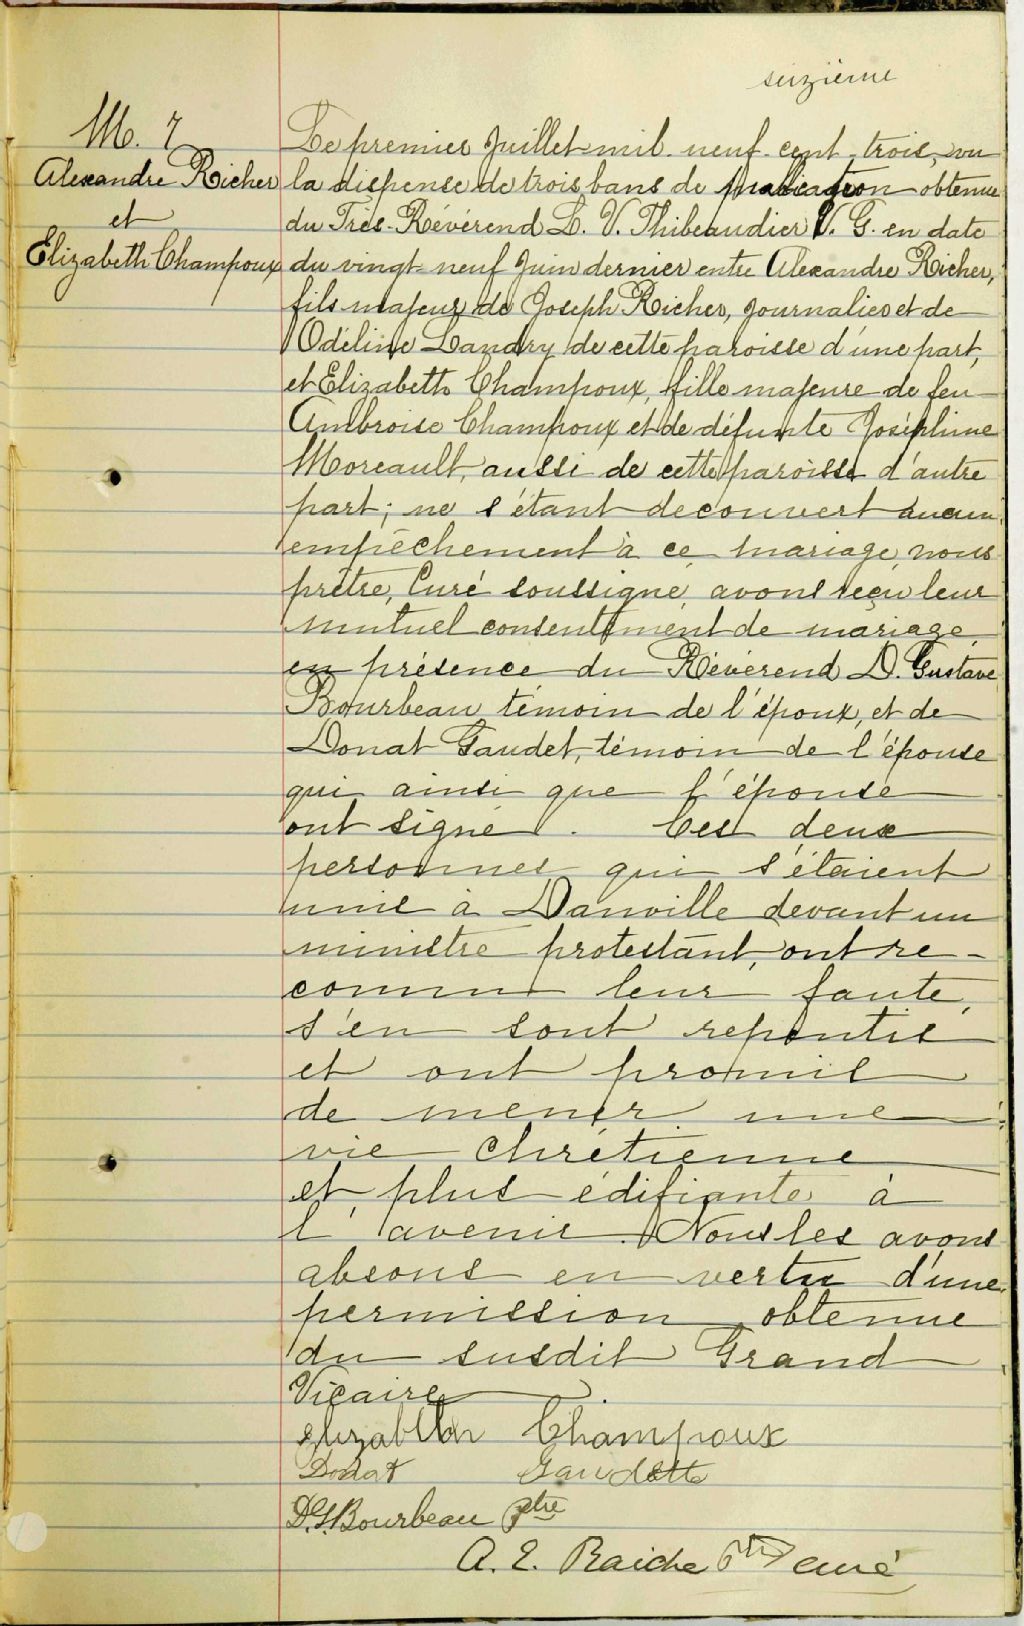 seizième
M. 7
Alexandre Richer
et
Elizabeth Champoux
Le premier Juillet mil neuf cent trois, vu
la dispense de trois bans de publication obtenue
du Très-Révérend L. V. Thibeaudier V. G. en date
du vingt-neuf Juin dernier entre Alexandre Richer,
fils majeur de Joseph Richer, journalier et de
Odéline Landry de cette paroisse d'une part,
et Elizabeth Champoux, fille majeure de feu
Ambroise Champoux et de défunte Joséphine
Moreault, aussi de cette paroisse d'autre
part; ne s'étant decouvert aucun
empêchement à ce mariage, nous
prêtre, Curé soussigné, avons reçu leur
mutuel consentement de mariage
en présence du Révérend D. Gustave
Bourbeau témoin de l'époux, et de
Donat Gaudet, témoin de l'épouse
qui ainsi que l'épouse
ont signé. Ces deux
personnes qui s'étaient
unis à Danville devant un
ministre protestant, ont re-
connu leur faute,
s'en sont repentis
et ont promis
de mener une
vie chrétienne
et plus édifiante à
l'avenir. Nous les avons
absous en vertu d'une
permission obtenue
du susdit Grand
Vicaire.
Elizabeth Champoux
Donat Gaudette
D. G. Bourbeau Ptre
A. E. Raiche Ptre curé